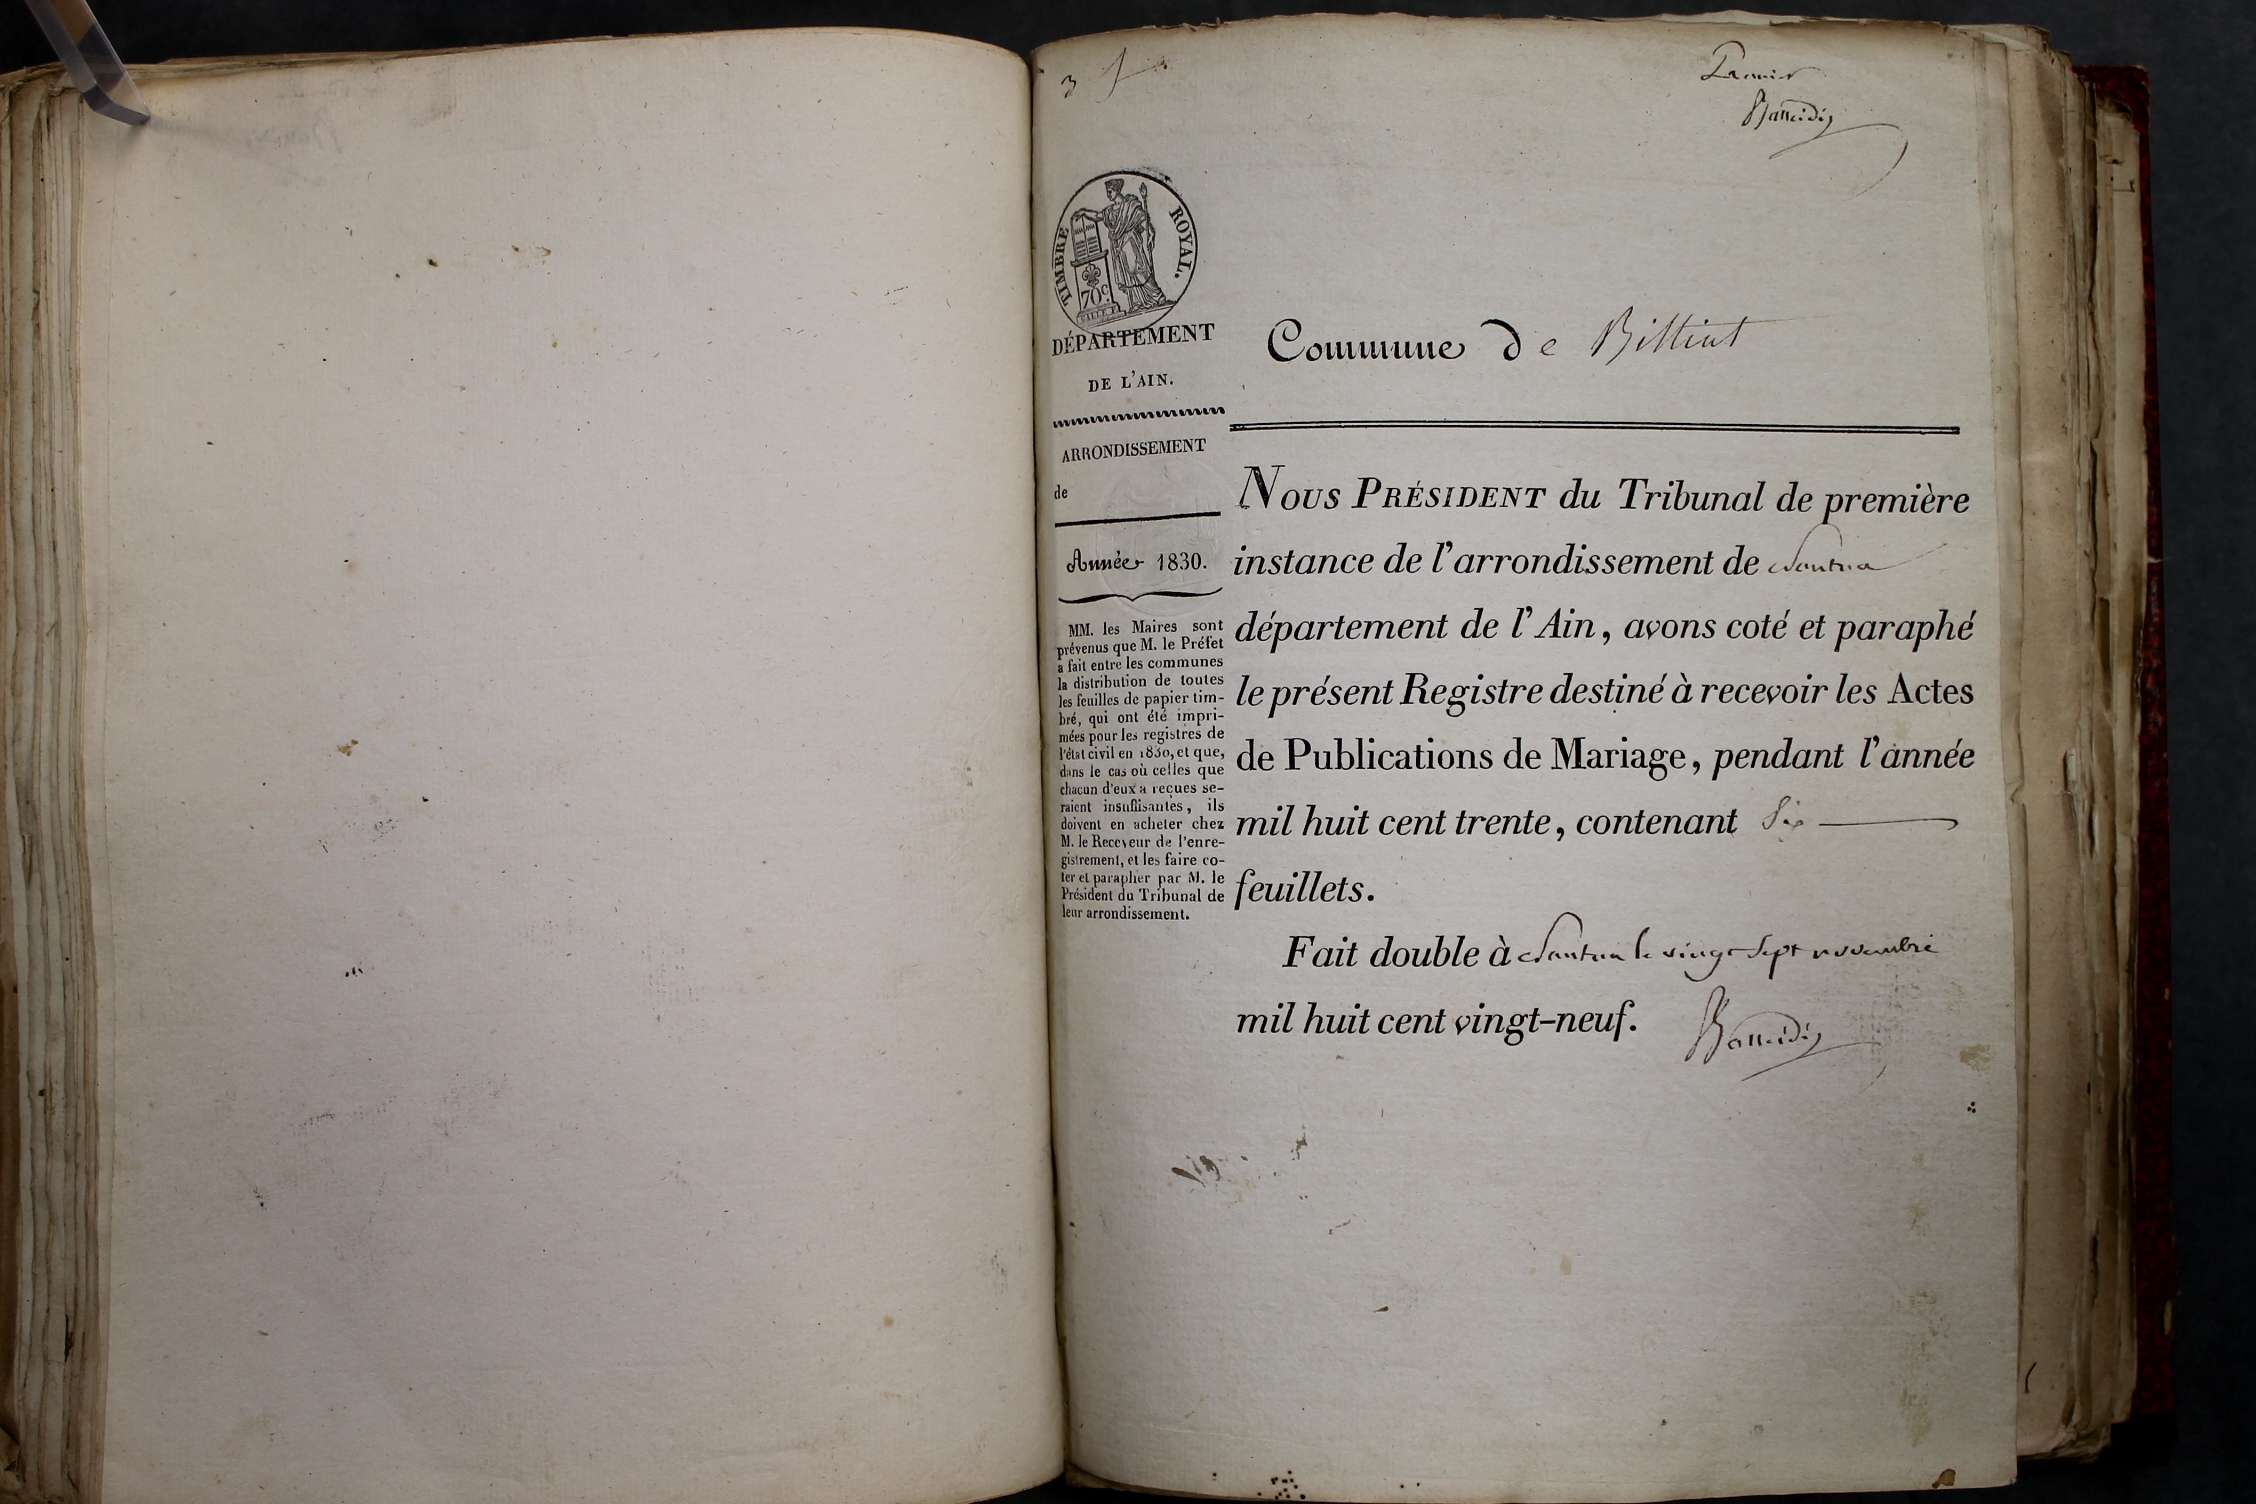 3
Premier
TIMBRE ROYAL.
70c.
DÉPARTEMENT
DE L'AIN.
ARRONDISSEMENT
de
Année 1830.
MM. les Maires sont
prévenus que M. le Préfet
a fait entre les communes
la distribution de toutes
les feuilles de papier tim-
bré, qui ont été impri-
mées pour les registres de
l'état civil en 1830, et que,
dans le cas où celles que
chacun d'eux a reçues se-
raient insuffisantes, ils
doivent en acheter chez
M. le Receveur de l'enre-
gistrement, et les faire co-
ter et parapher par M. le
Président du Tribunal de
leur arrondissement.
Commune de Billiat
NOUS PRÉSIDENT du Tribunal de première
instance de l'arrondissement de Nantua
département de l'Ain, avons coté et paraphé
le présent Registre destiné à recevoir les Actes
de Publications de Mariage, pendant l'année
mil huit cent trente, contenant Six
feuillets.
Fait double à Nantua le vingt Sept novembre
mil huit cent vingt-neuf.